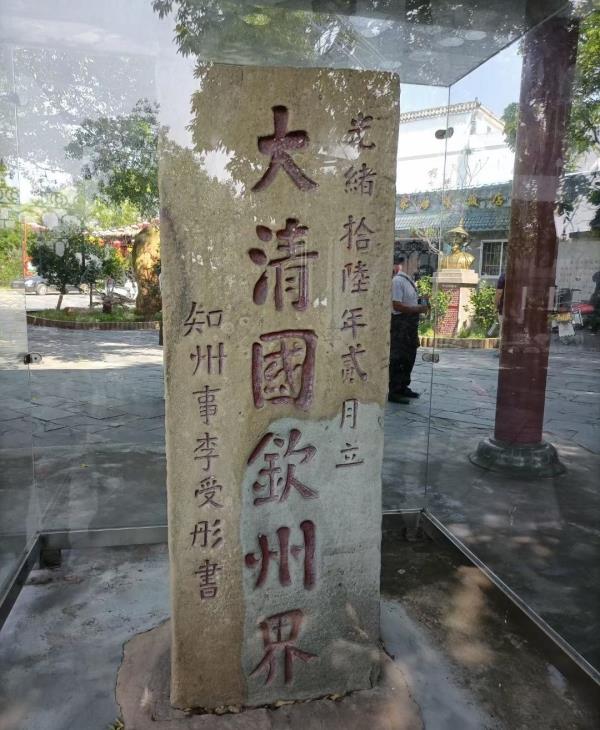 光緒拾陸年貳月立
大清國欽州界
知州事李受彤書